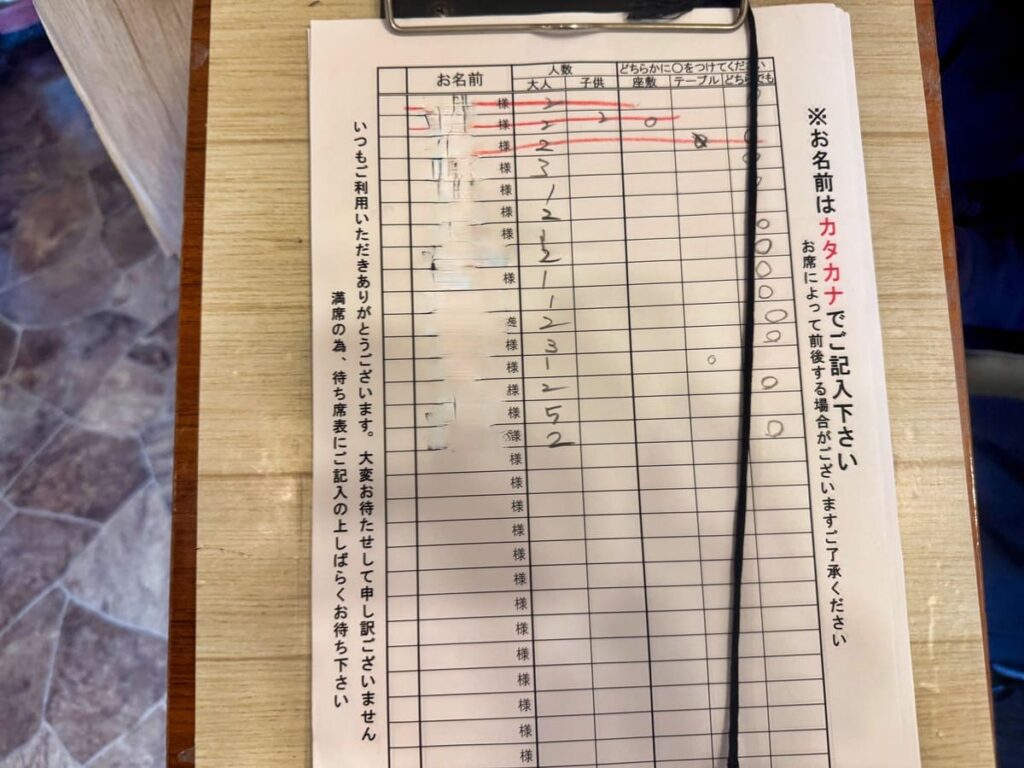 ※お名前はカタカナでご記入下さい
お席によって前後する場合がございますご了承ください
お名前 人数 どちらかに○をつけてください
大人 子供 座敷 テーブル どちらでも
様 2 ○
様 2 2 ○
様 2 ○
様 3 ○
様 1 ○
様 2
様 1 ○
2 ○
様 1 ○
1 ○
様 2 ○
様 3 ○
様 1 ○
様 2 ○
様 5
様 2 ○
様
様
様
様
様
様
様
様
様
様
様
様
様
いつもご利用いただきありがとうございます。大変お待たせして申し訳ございません
満席の為、待ち席表にご記入の上しばらくお待ち下さい